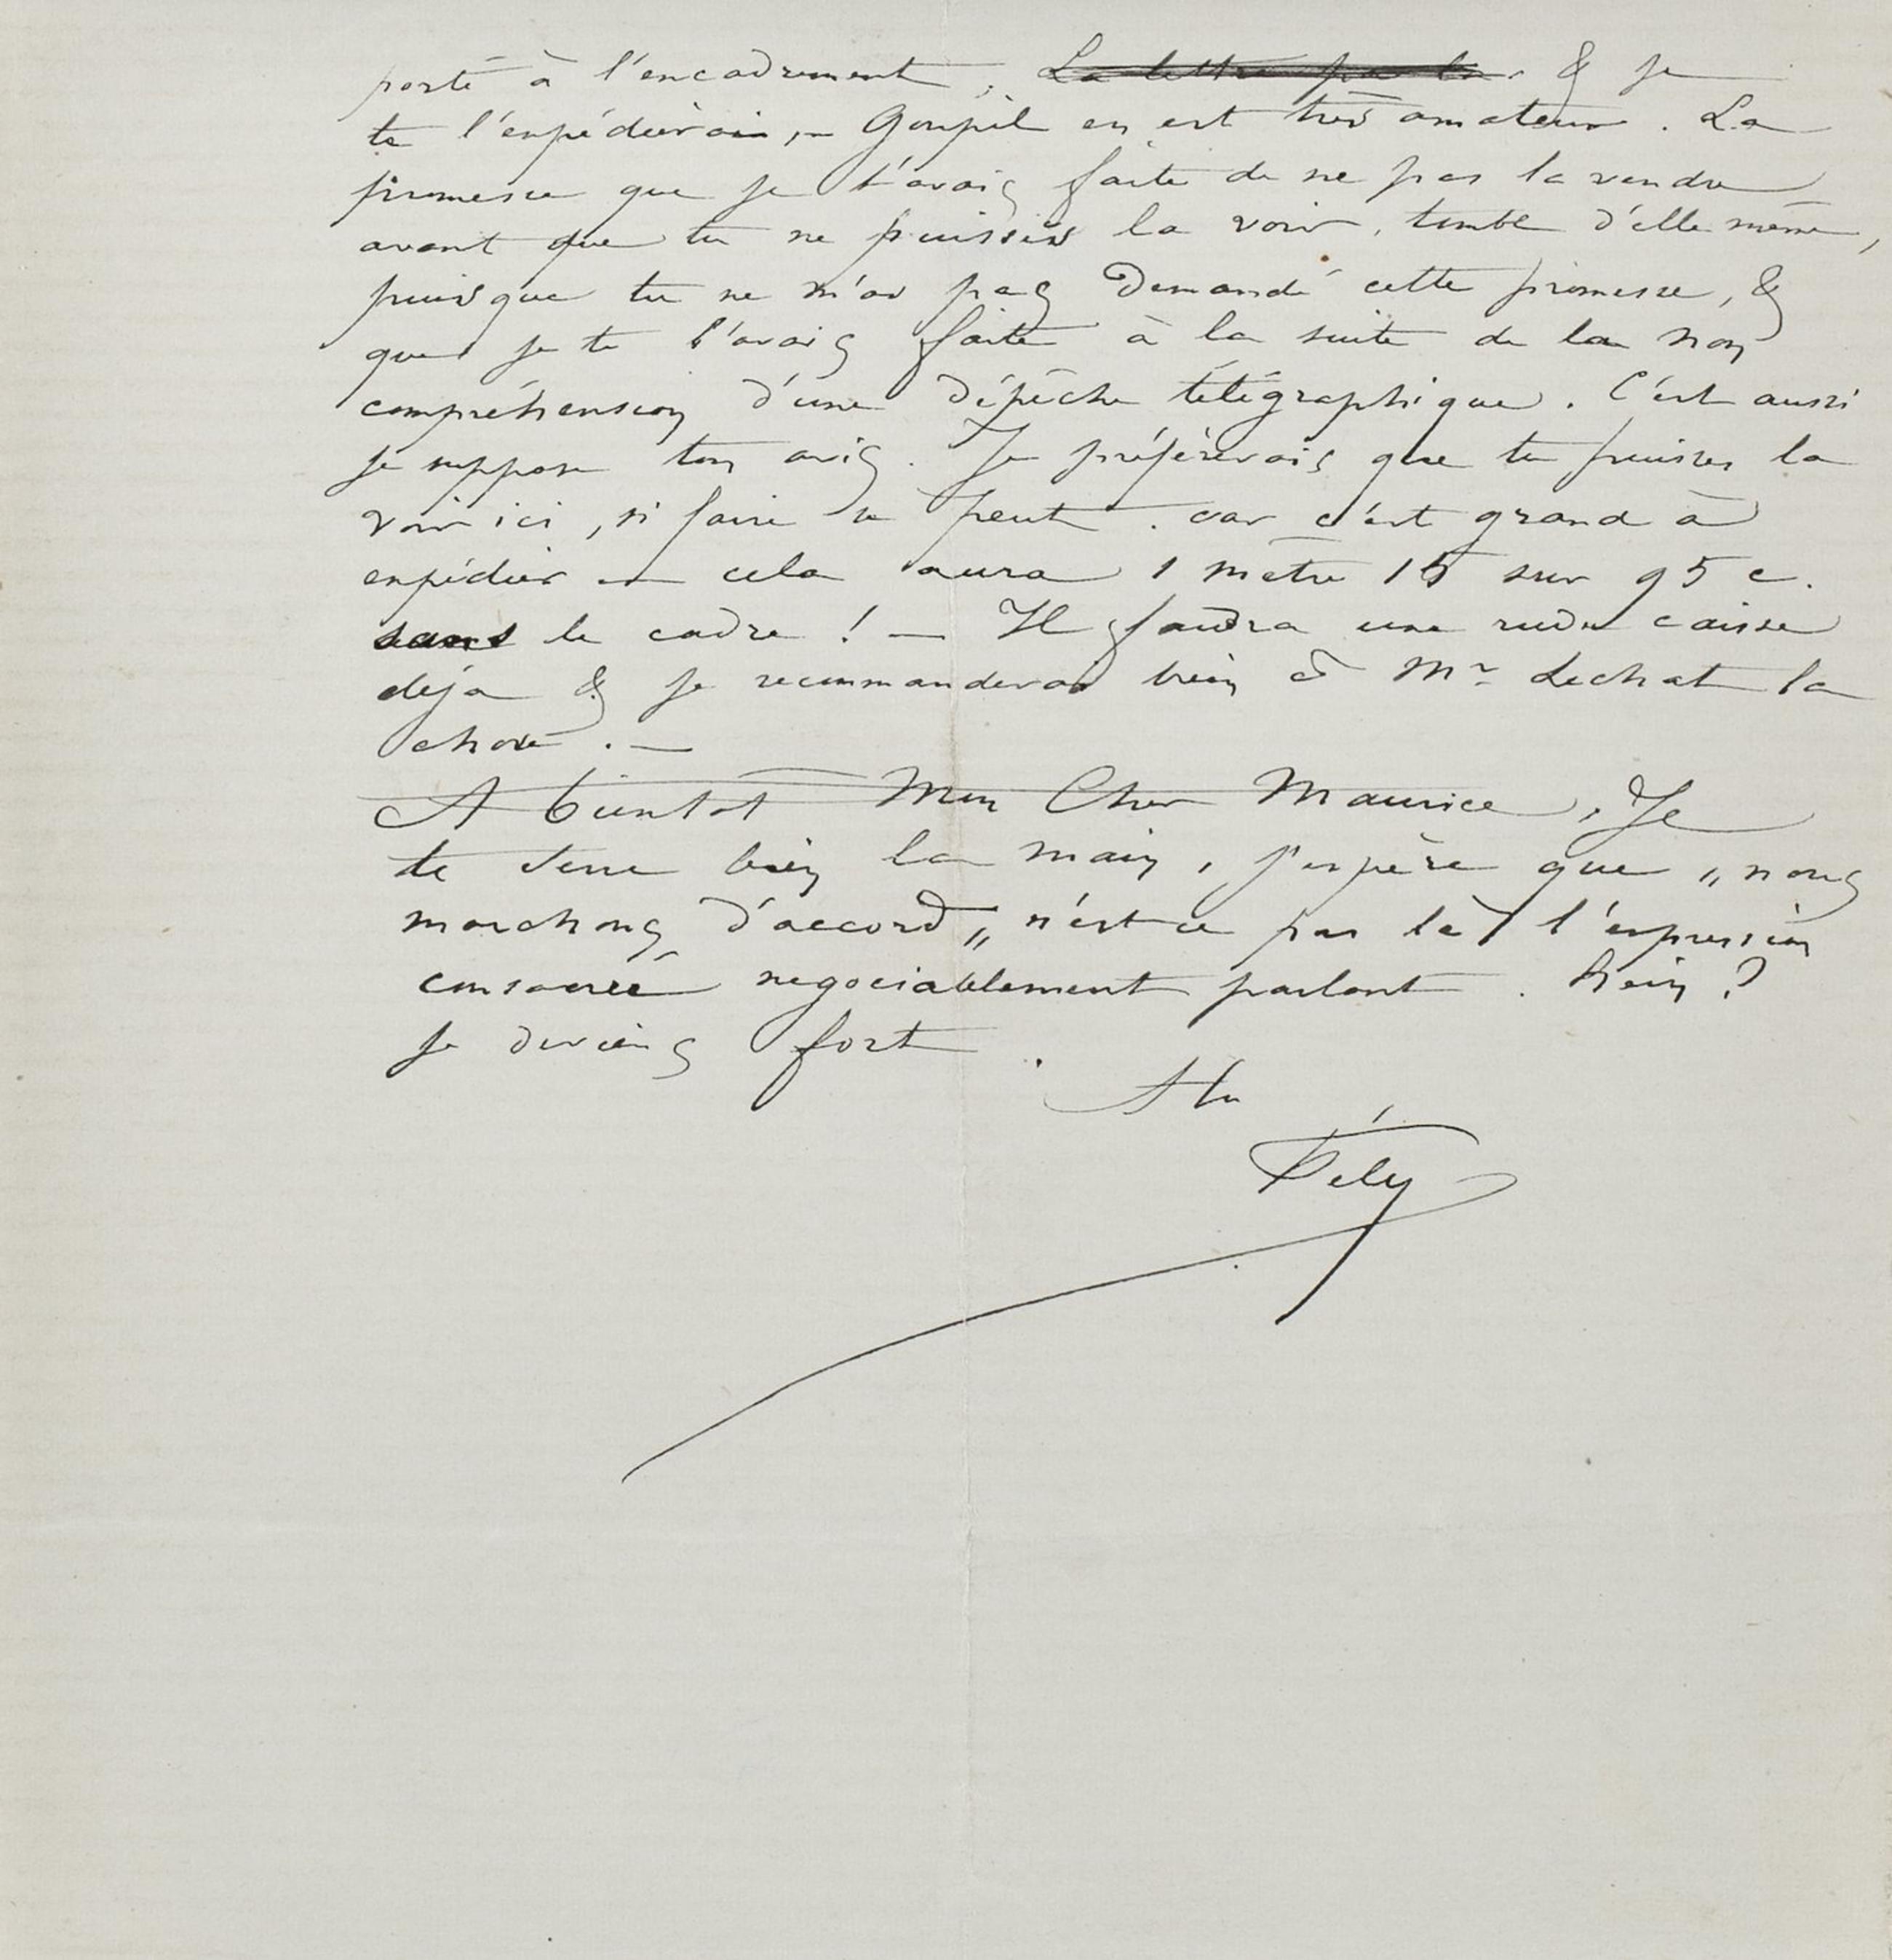 porté à l'encadrement, La lettre par la & je
te l'expédierai, — Goupil en est très amateur. La
promesse que je t'avais faite de ne pas la vendre
avant que tu ne puisses la voir, tombe d'elle même,
puisque tu ne m'as pas demandé cette promesse, &
que je te l'avais faite à la suite de la non
compréhension d'une dépêche télégraphique. C'est aussi
je suppose ton avis. Je préférerais que tu puisses la
voir ici, si faire se peut. car c'est grand à
expédier — cela aura 1 mètre 15 sur 95 c.
sans le cadre ! — Il faudra une rude caisse
déja & je recommanderai bien à Mr Lechat la
chose. —
A bientot Mon Cher Maurice, Je
te serre bien la main, j'espère que „ nous
marchons d'accord „ n'est ce pas là l'expression
consacrée negociablement parlant. hein ?
je deviens fort.
A tu
Fély